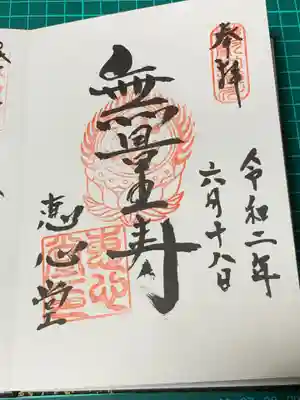 奉拝
令和二年
六月十八日
無量寿
恵心堂